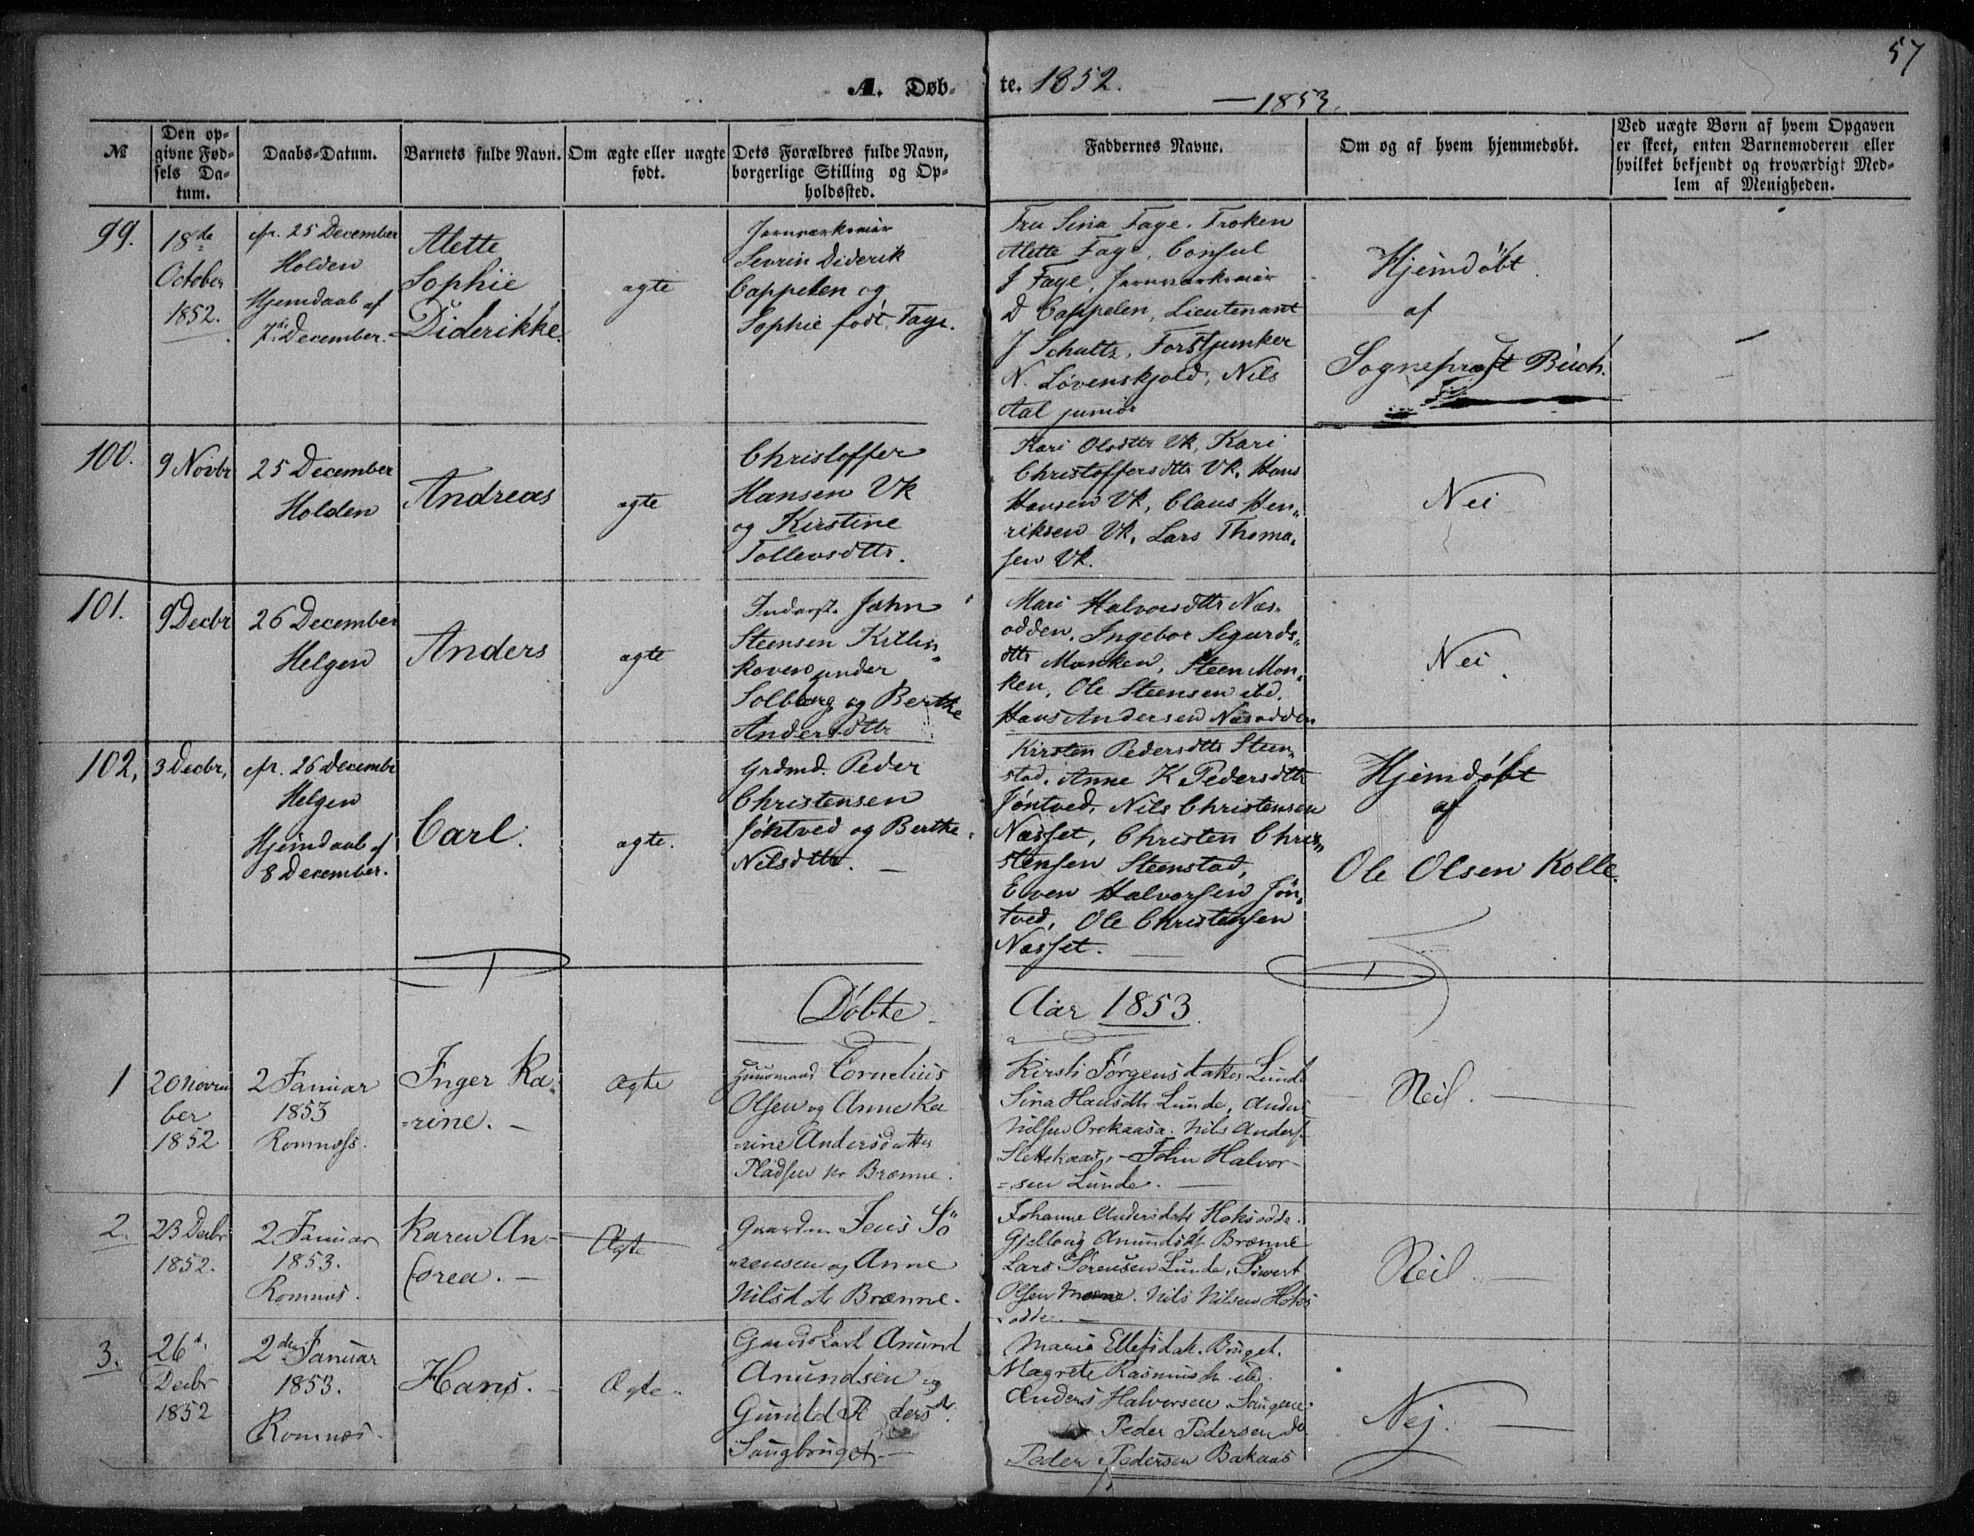 57
A. Døb-
te. 1852.
— 1853.
№
Den op-
givne Fød-
sels Da-
tum.
Daabs-Datum.
Barnets fulde Navn.
Om ægte eller uægte
født.
Dets Forældres fulde Navn,
borgerlige Stilling og Op-
holdssted.
Faddernes Navne.
Om og af hvem hjemmedøbt.
Ved uægte Børn af hvem Opgaven
er skeet, enten Barnemoderen eller
hvilket bekjendt og troværdigt Med-
lem af Menigheden.
99.
18de
October
1852.
cfr. 25 December
Holden
Hjemdaab af
7de December.
Alette
Sophie
Diderikke.
ægte
Jernværkseier
Sevrin Diderik
Cappelen og
Sophie født Faye.
Fru Sina Faye. Frøken
Alette Faye, Consul
J Faye, Jernværkseier
D Cappelen, Lieutenant
J Schultz, Forstjunker
N. Løvenskjold, Nils
Aal junior
Hjemdøbt
af
Sognepræst Buch.
100.
9 Novbr
25 December
Holden
Andreas
ægte
Christoffer
Hansen Vk
og Kirstine
Tollevsdttr.
Kari Olsdttr Vk, Kari
Christoffersdttr Vk, Hans
Hansen Vk, Claus Hen-
riksen Vk, Lars Thoma-
sen Vk.
Nei
101.
9 Decbr
26 December
Helgen
Anders
ægte
Inderst. John
Steensen Kitlin-
koven under
Solberg og Berthe
Andersdttr
Mari Halvorsdttr Næs-
odden, Ingebor Segurds-
dttr Manken, Steen Mon-
ken, Ole Steensen ibd.
Hans Andersen Næsodden
Nei
102,
3 Decbr,
cfr. 26 Decembr
Helgen
Hjemdaab af
8 December.
Carl.
ægte.
Grdmd. Peder
Christensen
Jøntved og Berthe
Nilsdttr. —
Kirsten Pedersdttr Steen-
stad, Anne K Pedersdttr
Jøntved, Nils Christensen
Næsset, Christen Chri-
stensen Steenstad,
Even Halvorsen Jøn-
tved, Ole Christensen
Næsset.
Hjemdøbt
af
Ole Olsen Kolle.
Døbte
Aar 1853.
1
20 Novem
ber
1852
2 Januar
1853
Romnæss.
Inger Ka-
rine. —
Ægte
Huusmand Cornelius
Olsen og Anne Ka
rine Andersdatter
Pladsen Brænne.
Kirsti Jørgensdatter Lunde
Sina Hansdtr Lunde, Anders
Nilsen Orekaasa. Nils Anders-
Slettekaas, — John Halvor-
sen Lunde. —
— Neil. —
2.
23 Decbr
1852.
2 Januar
1853.
Romnæs.
Karen An-
drea. —
Ægte
Gaardm Jens Sö
rensen og Anne
Nilsdatr Brænne.
Johanne Andersdatr Hoksodde.
Gjellaug Amundsdtr Brænne
Lars Sørensen Lunde, Siwert
Olsen Moene. Nils Nilsen Hoks
odde. —
Neil. —
3.
26de
Decbr
1852
2den Januar
1853.
Romnæs.
Hans. —
Ægte.
Amund
Amundsen og
Gunild
Saugbruget. —
Maria Ellefsdatr. Bruget.
Magrete ibd.
Anders Halvorsen
Peder Pedersen
Peder Pedersen Bakaas
Nej. —